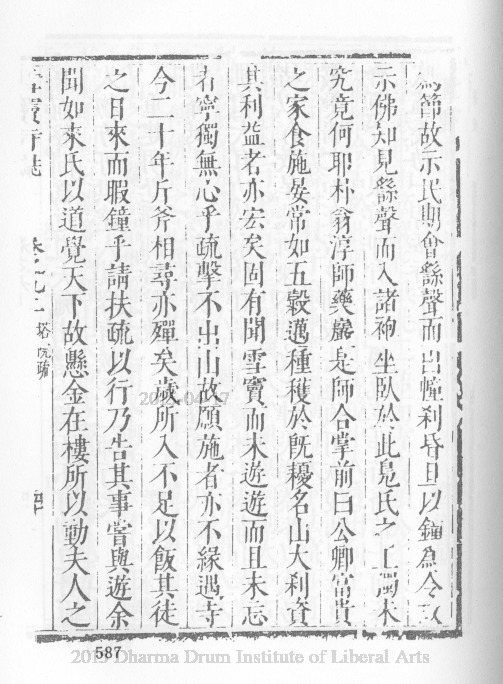 為節故示民期會繇聲而出幢刹昏旦以鐘為令故
示佛知見繇聲而入諸衲坐臥於此鳧氏之工蜀未
究竟何耶朴翁淳師藥巖是師合掌前曰公卿富貴
之家食施晏常如五穀邁種穫於既耰名山大利資
其利益者亦宏矣固有聞雪竇而未遊遊而且未忘
者寧獨無心乎疏擊不出山故願施者亦不緣遇寺
今二十年斤斧相尋亦殫矣歲所入不足以飯其徒
之日來而暇鐘乎請扶疏以行乃告其事嘗與遊余
聞如來氏以道覺天下故懸金在樓所以動夫人之
寺誌 卷之九上 塔院疏
587
2013 Dharma Drum Institute of Liberal Arts